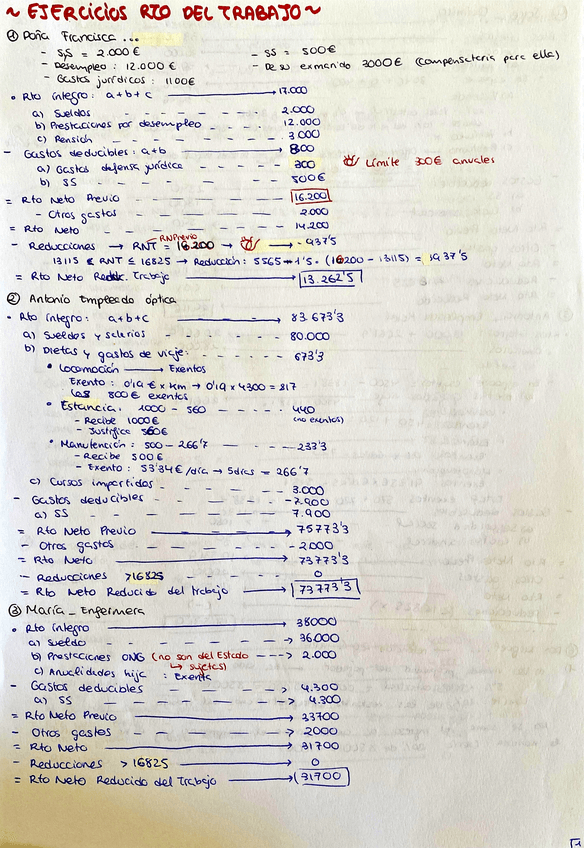 ~ EJERCICIOS RTO DEL TRABAJO ~
① Doña Francisca ...
- SyS = 2.000€ - SS = 500€
- Desempleo: 12.000€ - De su exmarido 3000€ (compensatoria para ella)
- Gastos jurídicos: 1100€
• Rto íntegro: a+b+c → 17.000
a) Sueldos - - - - 2.000
b) Prestaciones por desempleo - - - - 12.000
c) Pensión - - - - 3000
- Gastos deducibles: a+b → 800
a) Gastos defensa jurídica - - - - 300 Límite 300€ anuales
b) SS - - - - 500€
= Rto Neto Previo → 16.200
- Otros gastos - - - - 2.000
= Rto Neto - - - - 14.200
- Reducciones → RNT = 16.200 → → -937'5
RNPrevio
13115 ≤ RNT ≤ 16825 → Reducción: 5565 - 1'5 · (16200 - 13115) = 937'5
= Rto Neto Redc. Trabajo → 13.262'5
② Antonio Empleado óptica
• Rto íntegro: a+b+c → 83.673'3
a) Sueldos y salarios - - - - 80.000
b) Dietas y gastos de viaje: - - - - 673'3
• Locomoción → Exentos
Exento: 0'19 € x Km → 0'19 x 4300 = 817
los 800€ exentos
• Estancia: 1000 - 560 - - - - 440
- Recibe 1000€ (no exentos)
- Justifica 560€
• Manutención: 500 - 266'7 - - - - 233'3
- Recibe 500€
- Exento: 53'34€/día → 5días = 266'7
c) Cursos impartidos - - - - 3.000
- Gastos deducibles - - - - -7.900
a) SS - - - - 7.900
= Rto Neto Previo → 75773'3
- Otros gastos - - - - -2000
= Rto Neto - - - - 73773'3
- Reducciones >16825 - - - - 0
= Rto Neto Reducido del trabajo → 73773'3
③ María _ Enfermera
• Rto íntegro → 38000
a) Sueldo - - - - → 36000
b) Prestaciones ONG (no son del Estado - - → 2.000
↳ sujetas)
c) Anualidades hija : Exenta
- Gastos deducibles - - - - > 4.300
a) SS - - - - > 4.300
= Rto Neto Previo → 33700
- Otros gastos → 2000
= Rto Neto → 31700
- Reducciones >16825 → 0
= Rto Neto Reducido del Trabajo → 31700